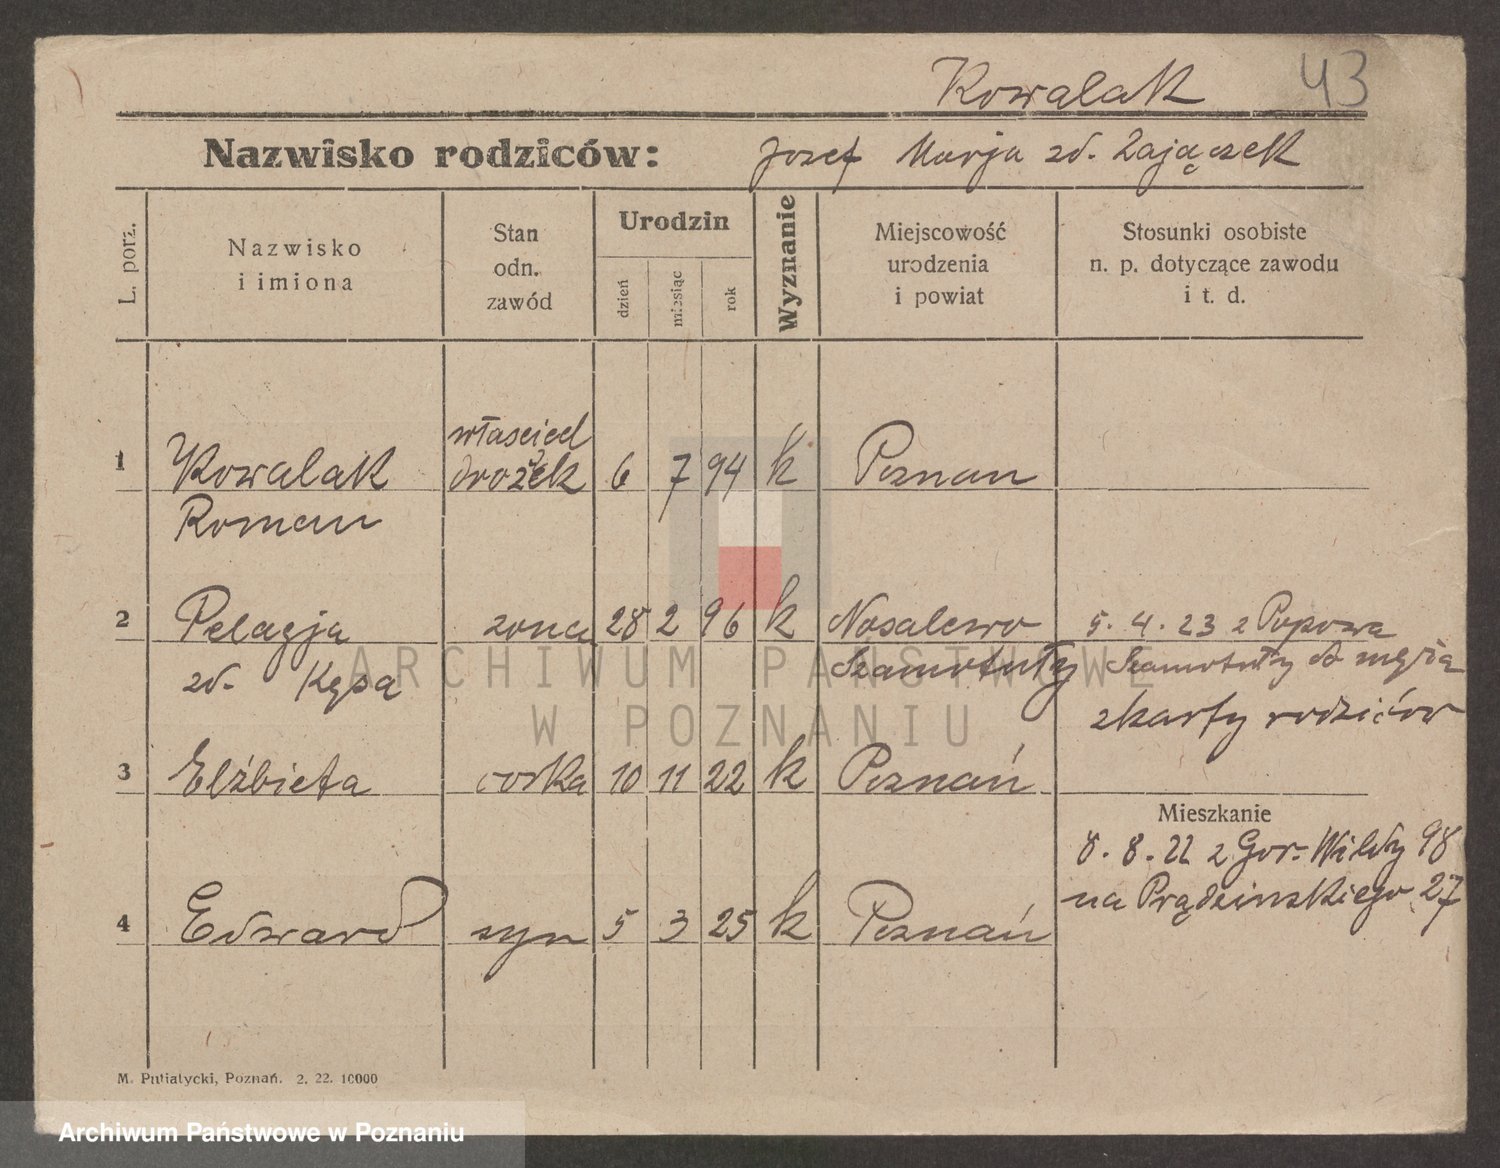 Kowalak 43
Nazwisko rodziców: Józef Marja zd. Zajączek
L. porz.
Nazwisko
i imiona
Stan
odn.
zawód
Urodzin
dzień
miesiąc
rok
Wyznanie
Miejscowość
urodzenia
i powiat
Stosunki osobiste
n. p. dotyczące zawodu
i t. d.
właściciel
1 Kowalak drożek 6 7 94 k Poznan
Roman
2 Pelagja zona 28 2 96 k Nosalewo 5. 4. 23 z Popowa
zd. Kępa Szamotuły Szamotuły do męża
z karty rodziców
3 Elżbieta corka 10 11 22 k Poznań
Mieszkanie
8. 8. 22 z Gor. Wildy 98
na Prądzinskiego 27
4 Edward syn 5 3 25 k Poznań
M. Putiatycki, Poznań. 2. 22. 10000
ARCHIWUM PAŃSTWOWE
W POZNANIU
Archiwum Państwowe w Poznaniu